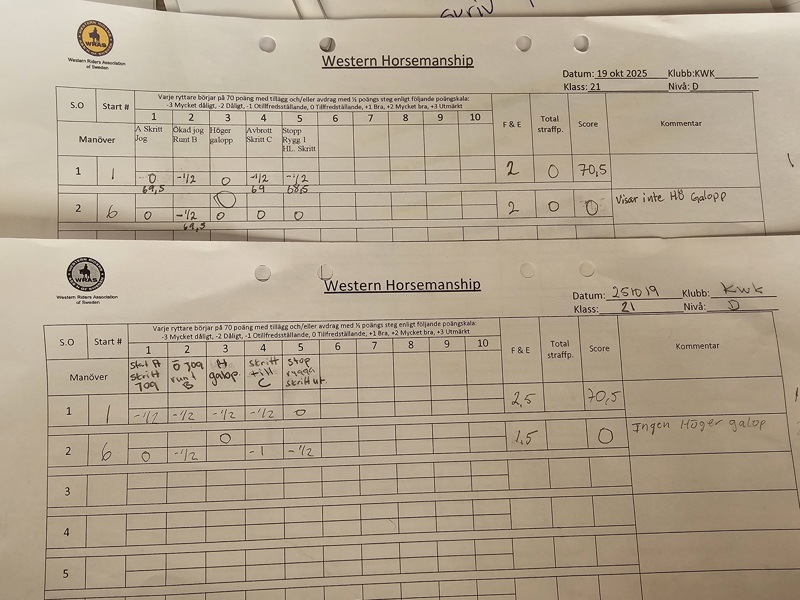 skriv
WRAS
Western Riders Association
of Sweden
Western Horsemanship
Datum: 19 okt 2025 Klubb:KWK
Klass: 21 Nivå: D
S.O Start # Varje ryttare börjar på 70 poäng med tillägg och/eller avdrag med ½ poängs steg enligt följande poängskala:
-3 Mycket dåligt, -2 Dåligt, -1 Otillfredsställande, 0 Tillfredsställande, +1 Bra, +2 Mycket bra, +3 Utmärkt
1 2 3 4 5 6 7 8 9 10 F & E Total straffp. Score Kommentar
Manöver A Skritt Jog Ökad jog Runt B Höger galopp Avbrott Skritt C Stopp Rygg 1 HL. Skritt
1 1 0 -1/2 0 -1/2 -1/2 2 0 70,5
69,5 69 68,5
2 6 0 -1/2 0 0 0 2 0 0 Visar inte Hö Galopp
69,5
WRAS
Western Riders Association
of Sweden
Western Horsemanship
Datum: 251019 Klubb: KWK
Klass: 21 Nivå: D
S.O Start # Varje ryttare börjar på 70 poäng med tillägg och/eller avdrag med ½ poängs steg enligt följande poängskala:
-3 Mycket dåligt, -2 Dåligt, -1 Otillfredsställande, 0 Tillfredsställande, +1 Bra, +2 Mycket bra, +3 Utmärkt
1 2 3 4 5 6 7 8 9 10 F & E Total straffp. Score Kommentar
Manöver Start A skritt jog Ö jog runt B H galop. skritt till C stop rygga skritt ut
1 1 -1/2 -1/2 -1/2 -1/2 0 2,5 70,5
2 6 0 -1/2 0 -1 -1/2 1,5 0 Ingen Höger galop
3
4
5